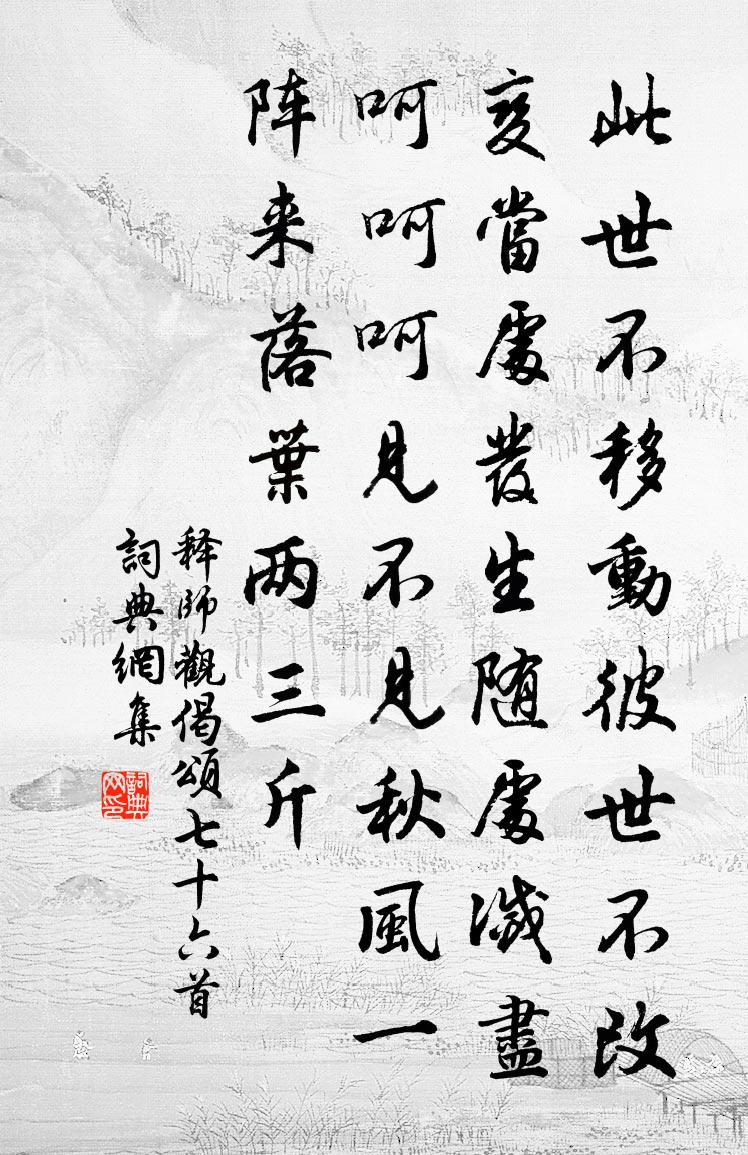 此世不移動彼世不改
变當處發生随處滅盡
呵呵呵見不見秋風一
阵来落葉两三斤
释師觀偈頌七十六首
詞典網集
詞典网印